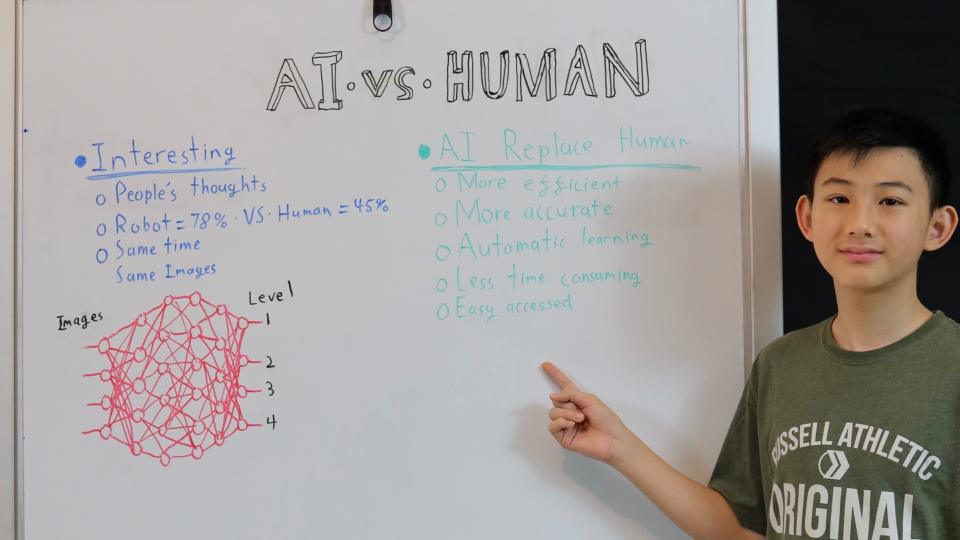 AI·vs·HUMAN
• Interesting
o People's thoughts
o Robot = 78% · VS · Human = 45%
o Same time
Same Images
Images
Level
1
2
3
4
• AI Replace Human
o More efficient
o More accurate
o Automatic learning
o Less time consuming
o Easy accessed
RUSSELL ATHLETIC
ORIGINAL